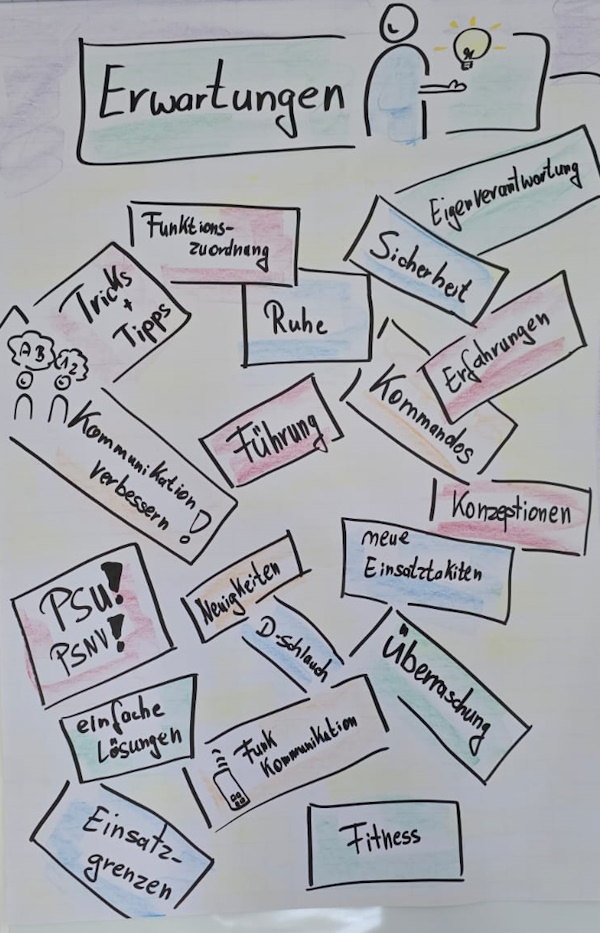 Erwartungen
Eigenverantwortung
Funktions-
zuordnung
Sicherheit
Tricks
+
Tipps
Ruhe
Erfahrungen
AB
12
Kommandos
Führung
Kommunikation
verbessern!
Konzeptionen
neue
Einsatztakiten
PSU!
PSNV!
Neuigkeiten
D-schlauch
Überraschung
einfache
Lösungen
Funk
Kommunikation
Einsatz-
grenzen
Fitness